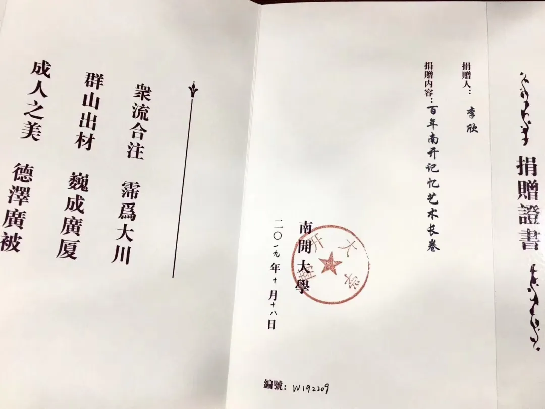 捐贈證書
捐贈人：李欣
捐贈内容：百年南开记忆艺术长卷
南開大學
二〇一九年十月十八日
編號：W192209
衆流合注 霈爲大川
群山出材 巍成廣厦
成人之美 德澤廣被